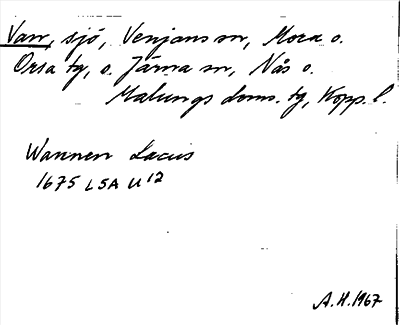 Van, sjö, Venjans sn, Mora o.
Orsa tg, o. Järna sn, Nås o.
Malungs doms. tg, Kopp. l.
Wannen Lacus
1675 LSA U 12
A.H. 1967